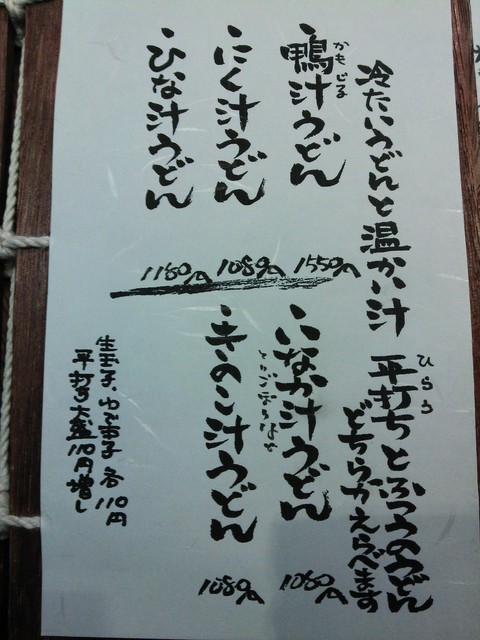 冷たいうどんと温かい汁
平打ちとふつうのうどん
ひらう
どちらかえらべます
鴨汁うどん
かもじる
1550円
にく汁うどん
1089円
ひな汁うどん
1180円
いなか汁うどん
1080円
きのこ汁うどん
1089円
生玉子、ゆで玉子 各110円
平打ち大盛110円増し